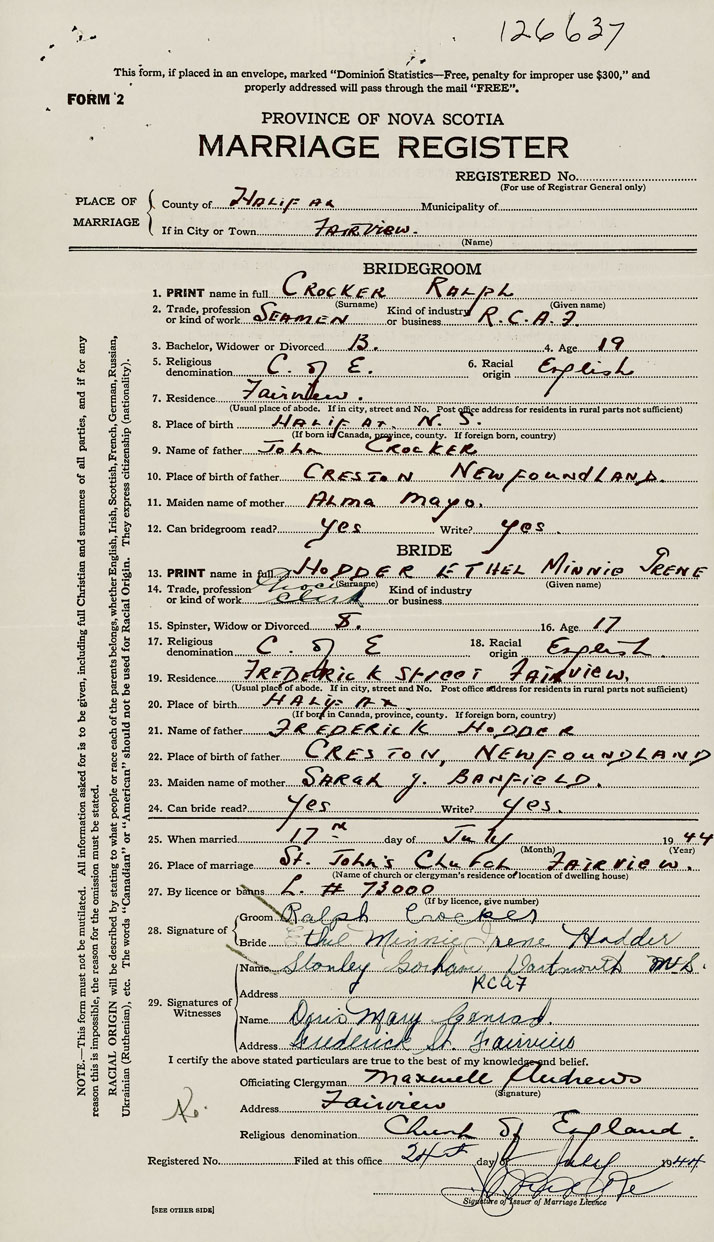 126637
This form, if placed in an envelope, marked "Dominion Statistics—Free, penalty for improper use $300," and
properly addressed will pass through the mail "FREE".
FORM 2
PROVINCE OF NOVA SCOTIA
MARRIAGE REGISTER
REGISTERED No.
(For use of Registrar General only)
PLACE OF MARRIAGE
County of HALIFAX Municipality of
If in City or Town FAIRVIEW.
(Name)
BRIDEGROOM
1. PRINT name in full CROCKER RALPH
(Surname) (Given name)
2. Trade, profession or kind of work SEAMEN Kind of industry or business R.C.A.F.
3. Bachelor, Widower or Divorced B. 4. Age 19
5. Religious denomination C. of E. 6. Racial origin English
7. Residence Fairview.
(Usual place of abode. If in city, street and No. Post office address for residents in rural parts not sufficient)
8. Place of birth HALIFAX. N. S.
(If born in Canada, province, county. If foreign born, country)
9. Name of father JOHN CROCKER
10. Place of birth of father CRESTON NEWFOUNDLAND.
11. Maiden name of mother ALMA MAYO.
12. Can bridegroom read? yes Write? yes.
BRIDE
13. PRINT name in full HODDER ETHEL MINNIE IRENE
(Surname) (Given name)
14. Trade, profession or kind of work Clerk Kind of industry or business
15. Spinster, Widow or Divorced S. 16. Age 17
17. Religious denomination C. of E 18. Racial origin English.
19. Residence FREDERICK Street FAIRVIEW.
(Usual place of abode. If in city, street and No. Post office address for residents in rural parts not sufficient)
20. Place of birth HALIFAX.
(If born in Canada, province, county. If foreign born, country)
21. Name of father FREDERICK HODDER
22. Place of birth of father CRESTON, NEWFOUNDLAND
23. Maiden name of mother SARAH J. BANFIELD.
24. Can bride read? yes Write? yes.
25. When married 17th day of July 1944
(Month) (Year)
26. Place of marriage St. John's Church FAIRVIEW.
(Name of church or clergyman's residence or location of dwelling house)
27. By licence or banns L. # 73000
(If by licence, give number)
28. Signature of
Groom Ralph Crocker
Bride Ethel Minnie Irene Hodder
29. Signatures of Witnesses
Name Stanley Gorham Dartmouth N.S.
Address RCAF
Name Doris Mary
Address Frederick St. Fairview
I certify the above stated particulars are true to the best of my knowledge and belief.
Officiating Clergyman Maxwell Andrews
(Signature)
Address Fairview
Religious denomination Church of England.
Registered No. Filed at this office 24th day of July 1944
Signature of Issuer of Marriage Licence
[SEE OTHER SIDE]
NOTE.—This form must not be mutilated. All information asked for is to be given, including full Christian and surnames of all parties, and if for any
reason this is impossible, the reason for the omission must be stated.
RACIAL ORIGIN will be described by stating to what people or race each of the parents belongs, whether English, Irish, Scottish, French, German, Russian,
Ukrainian (Ruthenian), etc. The words "Canadian" or "American" should not be used for Racial Origin. They express citizenship (nationality).